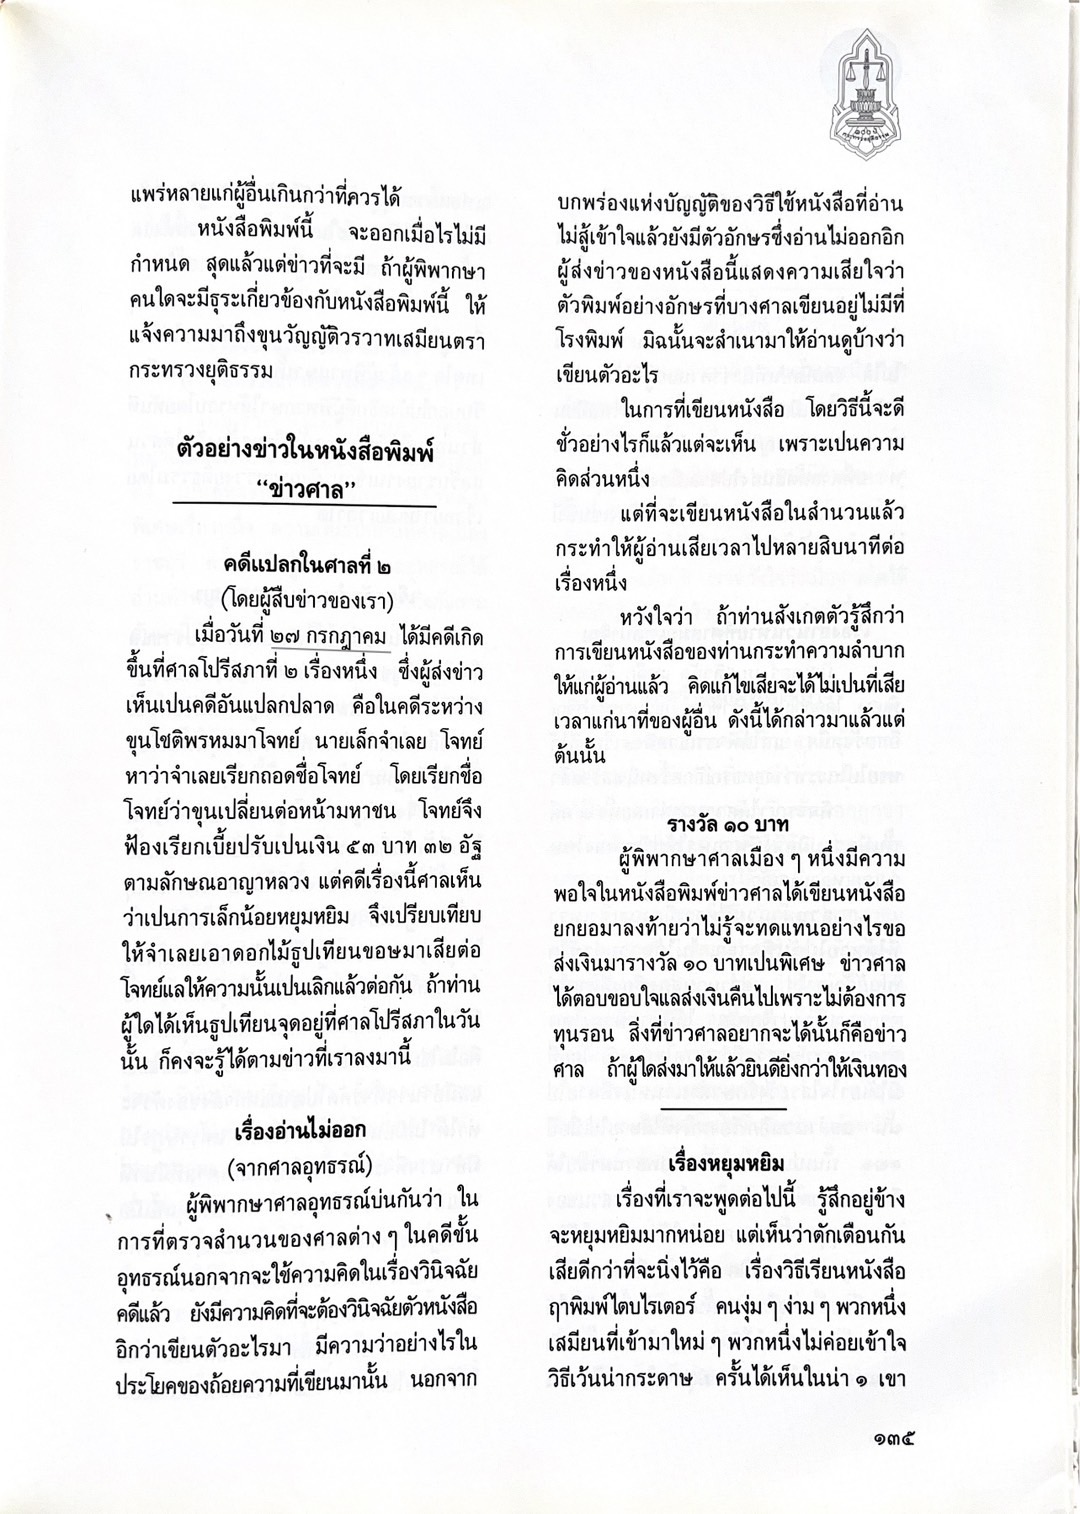 ๑๐๐ ปี
กระทรวงยุติธรรม
แพร่หลายแก่ผู้อื่นเกินกว่าที่ควรได้
หนังสือพิมพ์นี้ จะออกเมื่อไรไม่มี
กำหนด สุดแล้วแต่ข่าวที่จะมี ถ้าผู้พิพากษา
คนใดจะมีธุระเกี่ยวข้องกับหนังสือพิมพ์นี้ ให้
แจ้งความมาถึงขุนวัญญัติวรวาทเสมียนตรา
กระทรวงยุติธรรม
ตัวอย่างข่าวในหนังสือพิมพ์
“ข่าวศาล”
คดีแปลกในศาลที่ ๒
(โดยผู้สืบข่าวของเรา)
เมื่อวันที่ ๒๗ กรกฎาคม ได้มีคดีเกิด
ขึ้นที่ศาลโปรีสภาที่ ๒ เรื่องหนึ่ง ซึ่งผู้ส่งข่าว
เห็นเปนคดีอันแปลกปลาด คือในคดีระหว่าง
ขุนโชติพรหมมาโจทย์ นายเล็กจำเลย โจทย์
หาว่าจำเลยเรียกถอดชื่อโจทย์ โดยเรียกชื่อ
โจทย์ว่าขุนเปลี่ยนต่อหน้ามหาชน โจทย์จึง
ฟ้องเรียกเบี้ยปรับเปนเงิน ๕๓ บาท ๓๒ อัฐ
ตามลักษณอาญาหลวง แต่คดีเรื่องนี้ศาลเห็น
ว่าเปนการเล็กน้อยหยุมหยิม จึงเปรียบเทียบ
ให้จำเลยเอาดอกไม้ธูปเทียนขอษมาเสียต่อ
โจทย์แลให้ความนั้นเปนเลิกแล้วต่อกัน ถ้าท่าน
ผู้ใดได้เห็นธูปเทียนจุดอยู่ที่ศาลโปรีสภาในวัน
นั้น ก็คงจะรู้ได้ตามข่าวที่เราลงมานี้
เรื่องอ่านไม่ออก
(จากศาลอุทธรณ์)
ผู้พิพากษาศาลอุทธรณ์บ่นกันว่า ใน
การที่ตรวจสำนวนของศาลต่าง ๆ ในคดีชั้น
อุทธรณ์นอกจากจะใช้ความคิดในเรื่องวินิจฉัย
คดีแล้ว ยังมีความคิดที่จะต้องวินิจฉัยตัวหนังสือ
อิกว่าเขียนตัวอะไรมา มีความว่าอย่างไรใน
ประโยคของถ้อยความที่เขียนมานั้น นอกจาก
บกพร่องแห่งบัญญัติของวิธีใช้หนังสือที่อ่าน
ไม่สู้เข้าใจแล้วยังมีตัวอักษรซึ่งอ่านไม่ออกอิก
ผู้ส่งข่าวของหนังสือนี้แสดงความเสียใจว่า
ตัวพิมพ์อย่างอักษรที่บางศาลเขียนอยู่ไม่มีที่
โรงพิมพ์ มิฉนั้นจะสำเนามาให้อ่านดูบ้างว่า
เขียนตัวอะไร
ในการที่เขียนหนังสือ โดยวิธีนี้จะดี
ชั่วอย่างไรก็แล้วแต่จะเห็น เพราะเปนความ
คิดส่วนหนึ่ง
แต่ที่จะเขียนหนังสือในสำนวนแล้ว
กระทำให้ผู้อ่านเสียเวลาไปหลายสิบนาทีต่อ
เรื่องหนึ่ง
หวังใจว่า ถ้าท่านสังเกตตัวรู้สึกว่า
การเขียนหนังสือของท่านกระทำความลำบาก
ให้แก่ผู้อ่านแล้ว คิดแก้ไขเสียจะได้ไม่เปนที่เสีย
เวลาแก่นาทีของผู้อื่น ดังนี้ได้กล่าวมาแล้วแต่
ต้นนั้น
รางวัล ๑๐ บาท
ผู้พิพากษาศาลเมือง ๆ หนึ่งมีความ
พอใจในหนังสือพิมพ์ข่าวศาลได้เขียนหนังสือ
ยกยอมาลงท้ายว่าไม่รู้จะทดแทนอย่างไรขอ
ส่งเงินมารางวัล ๑๐ บาทเปนพิเศษ ข่าวศาล
ได้ตอบขอบใจแลส่งเงินคืนไปเพราะไม่ต้องการ
ทุนรอน สิ่งที่ข่าวศาลอยากจะได้นั้นก็คือข่าว
ศาล ถ้าผู้ใดส่งมาให้แล้วยินดียิ่งกว่าให้เงินทอง
เรื่องหยุมหยิม
เรื่องที่เราจะพูดต่อไปนี้ รู้สึกอยู่ข้าง
จะหยุมหยิมมากหน่อย แต่เห็นว่าตักเตือนกัน
เสียดีกว่าที่จะนิ่งไว้คือ เรื่องวิธีเรียนหนังสือ
ฤาพิมพ์ไตบไรเตอร์ คนงุ่ม ๆ ง่าม ๆ พวกหนึ่ง
เสมียนที่เข้ามาใหม่ ๆ พวกหนึ่งไม่ค่อยเข้าใจ
วิธีเว้นน่ากระดาษ ครั้นได้เห็นในน่า ๑ เขา
๑๓๕